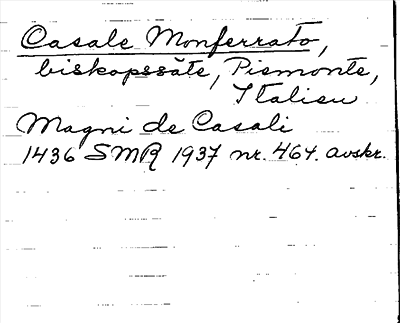 Casale Monferrato,
biskopssäte, Piemonte,
Italien
Magni de Casali
1436 SMR 1937 nr. 464. avskr.